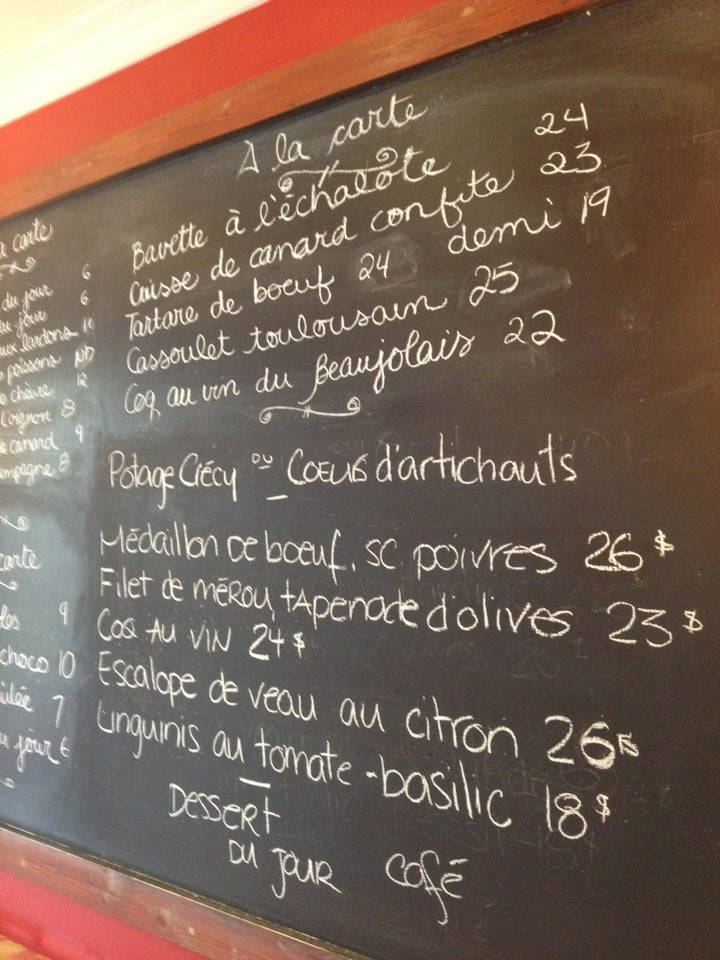 a carte
du jour 6
du jour 6
aux lardons
poissons
chèvre 12
l'oignon 8
canard 9
8
carte
9
choco 10
7
jour 6
À la carte
Bavette à l'échalote 24
Cuisse de canard confite 23
Tartare de boeuf 24 demi 19
Cassoulet toulousain 25
Coq au vin du Beaujolais 22
Potage Crécy ou Coeurs d'artichauts
Médaillon de boeuf, sc poivres 26 $
Filet de mérou, tapenade d'olives 23 $
Coq au vin 24 $
Escalope de veau au citron 26 $
Linguinis au tomate-basilic 18 $
Dessert
du jour café